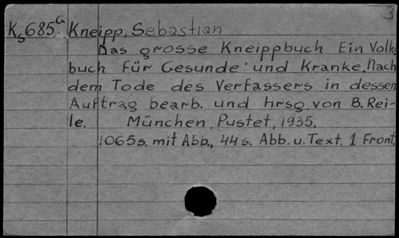 3
K5685G Kneipp, Sebastian
Das grosse Kneippbuch Ein Volks
buch für Gesunde und Kranke, Nach
dem Tode des Verfassers in dessen
Auftrag bearb. und hrsg. von B. Rei-
le. München, Pustet, 1935.
1065s. mit Abb., 44s. Abb. u. Text. 1 Front.